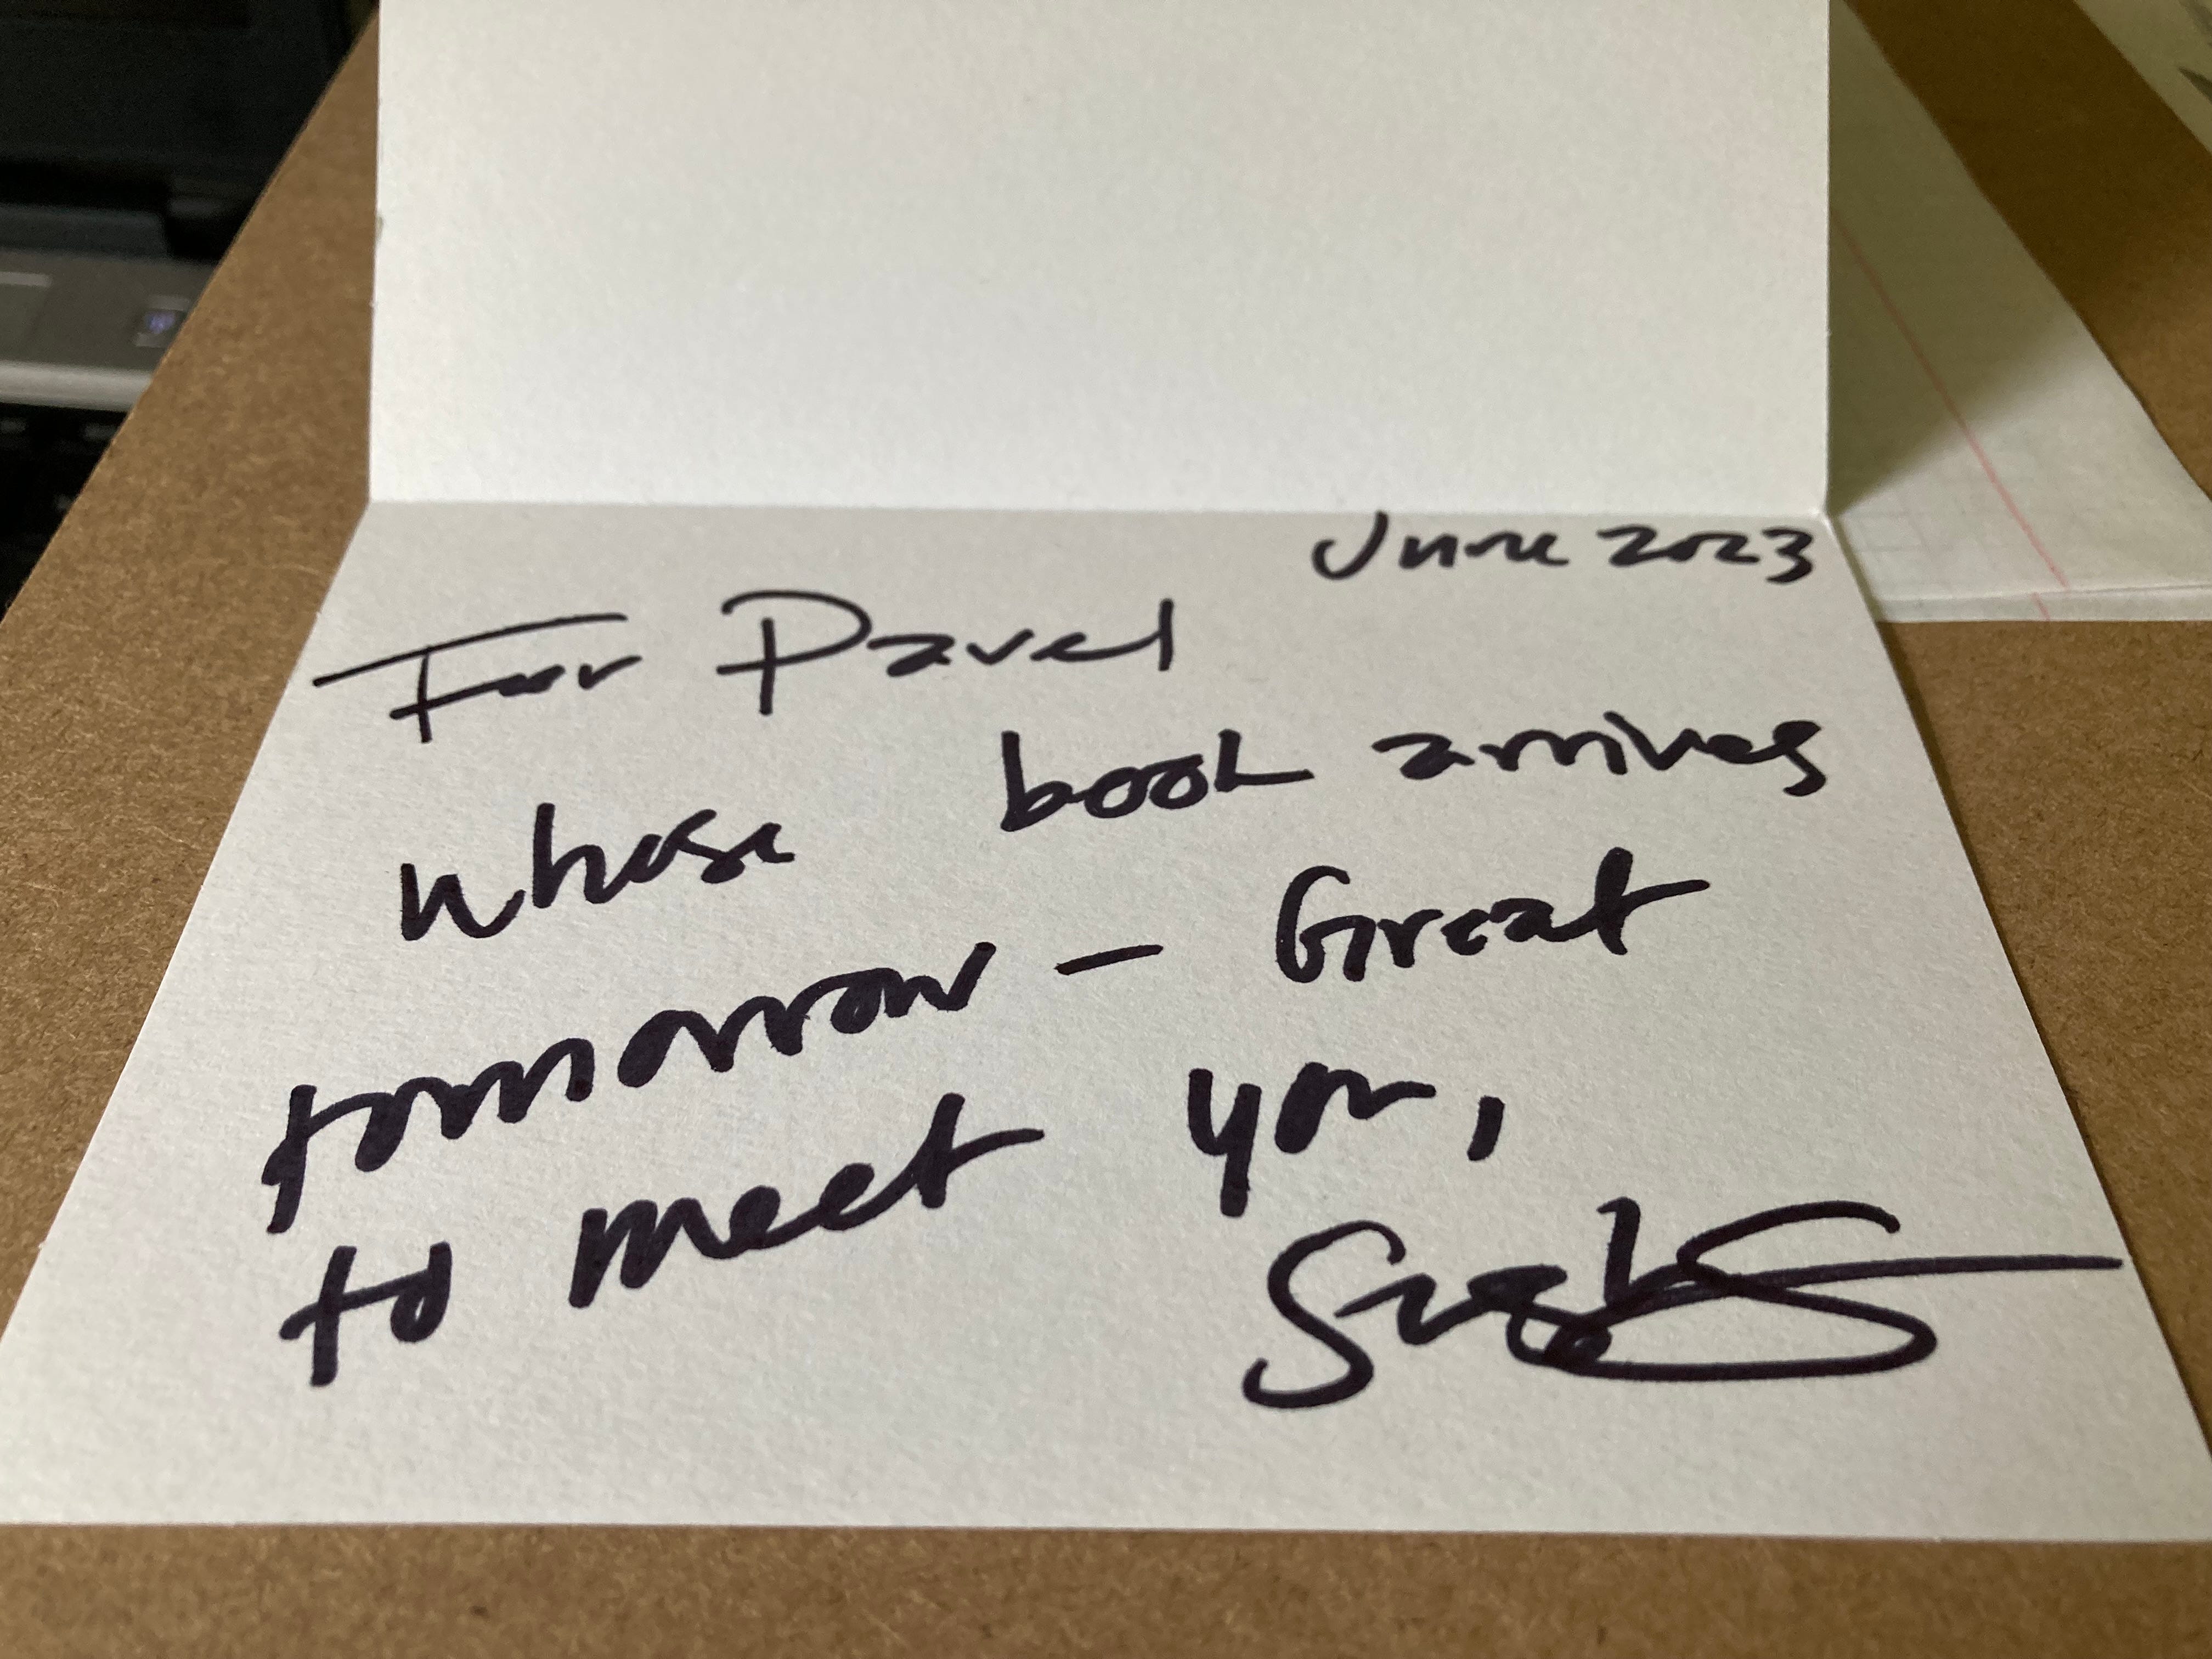 June 2023
For Pavel
whose book arrives
tomorrow - Great
to meet you,